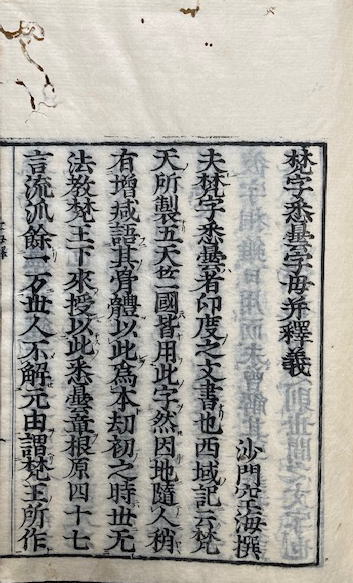 梵字悉曇字母并釋義
沙門空海撰
夫梵字悉曇者印度之文書也西域記云梵
天所製五天竺國皆用此字然因地隨人稍
有增減語其骨體以此為本劫初之時世无
法教梵王下來授以此悉曇章根原四十七
言流派餘一万世人不解元由謂梵王所作